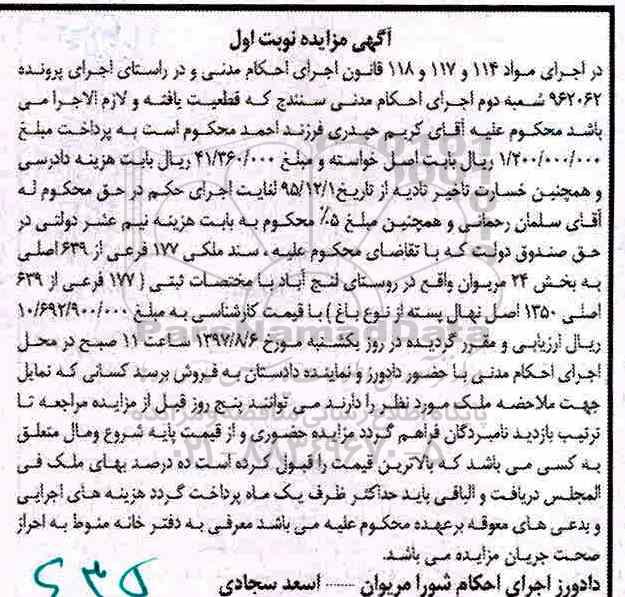 آگهی مزایده نوبت اول
در اجرای مواد ۱۱۴ و ۱۱۷ و ۱۱۸ قانون اجرای احکام مدنی و در راستای اجرای پرونده
۹۶۲۰۶۲ شعبه دوم اجرای احکام مدنی سنندج که قطعیت یافته و لازم الاجرا می
باشد محکوم علیه آقای کریم حیدری فرزند احمد محکوم است به پرداخت مبلغ
۱/۲۰۰/۰۰۰/۰۰۰ ریال بابت اصل خواسته و مبلغ ۴۱/۳۶۰/۰۰۰ ریال بابت هزینه دادرسی
و همچنین خسارت تاخیر تادیه از تاریخ ۹۵/۱۲/۱ لغایت اجرای حکم در حق محکوم له
آقای سلمان رحمانی و همچنین مبلغ ۵٪ محکوم به بابت هزینه نیم عشر دولتی در
حق صندوق دولت که با تقاضای محکوم علیه ، سند ملکی ۱۷۷ فرعی از ۶۳۹ اصلی
به بخش ۲۴ مریوان واقع در روستای لنج آباد با مختصات ثبتی ( ۱۷۷ فرعی از ۶۳۹
اصلی ۱۳۵۰ اصل نهال پسته از نوع باغ ) با قیمت کارشناسی به مبلغ ۱۰/۶۹۲/۹۰۰/۰۰۰
ریال ارزیابی و مقرر گردیده در روز یکشنبه مورخ ۱۳۹۷/۸/۶ ساعت ۱۱ صبح در محل
اجرای احکام مدنی با حضور دادورز و نماینده دادستان به فروش برسد کسانی که تمایل
جهت ملاحضه ملک مورد نظر را دارند می توانند پنج روز قبل از مزایده مراجعه تا
ترتیب بازدید نامبردگان فراهم گردد مزایده حضوری و از قیمت پایه شروع ومال متعلق
به کسی می باشد که بالاترین قیمت را قبول کرده است ده درصد بهای ملک فی
المجلس دریافت و الباقی باید حداکثر ظرف یک ماه پرداخت گردد هزینه های اجرایی
و بدعی های معوقه برعهده محکوم علیه می باشد معرفی به دفتر خانه منوط به احراز
صحت جریان مزایده می باشد.
دادورز اجرای احکام شورا مریوان ...... اسعد سجادی
ParsNamadData